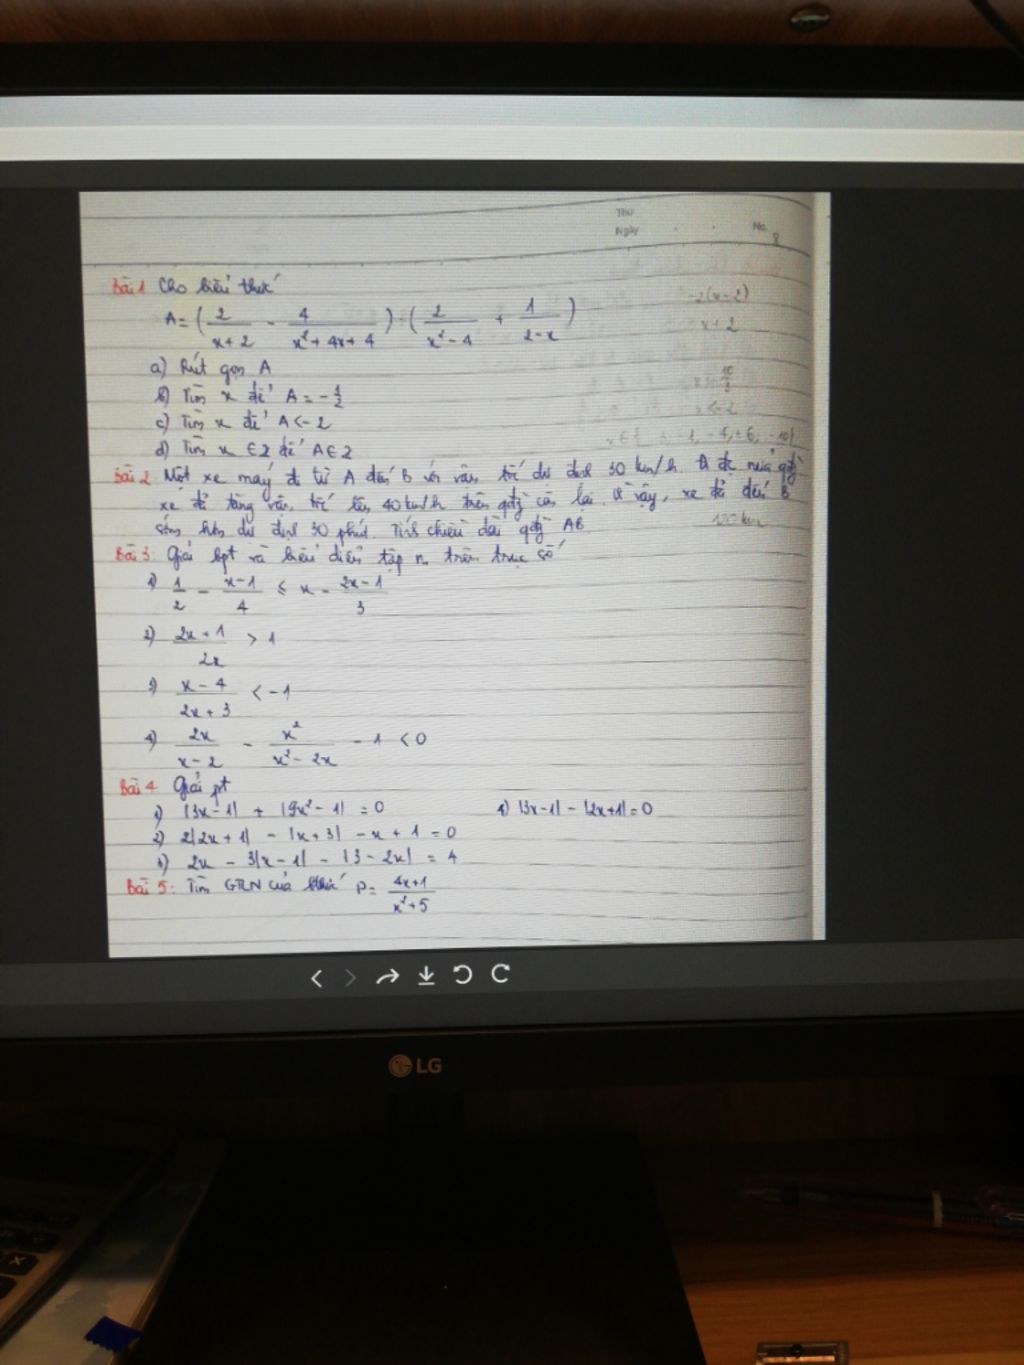 Thứ
Ngày
No.
8
Bài 1 Cho biểu thức
A = ( 2/(x+2) - 4/(x²+4x+4) ) : ( 2/(x²-4) + 1/(2-x) )
-2(x-2)
x+2
a) Rút gọn A
b) Tìm x để A = -1/2
10/3
c) Tìm x để A < -2
x<-2
d) Tìm x ∈ Z để A ∈ Z
Bài 2 Một xe máy đi từ A đến B với vận tốc dự định 30 km/h. Đi đc nửa qđg
xe đã tăng vận tốc lên 40km/h trên qđg còn lại. Vì vậy, xe đã đến B
sớm hơn dự định 30 phút. Tính chiều dài qđg AB
120km
Bài 3: Giải bpt và biểu diễn tập n trên trục số
1) 1/2 - (x-1)/4 ≤ x - (2x-1)/3
2) (2x+1)/2x > 1
3) (x-4)/(2x+3) < -1
4) 2x/(x-2) - x²/(x²-2x) - 1 < 0
Bài 4 Giải pt
1) |3x-1| + |9x²-1| = 0 4) |3x-1| - |2x+1| = 0
2) 2|2x+1| - |x+3| - x + 1 = 0
3) 2x - 3|x-1| - |3-2x| = 4
Bài 5: Tìm GTLN của bthức P = (4x+1)/(x²+5)
LG